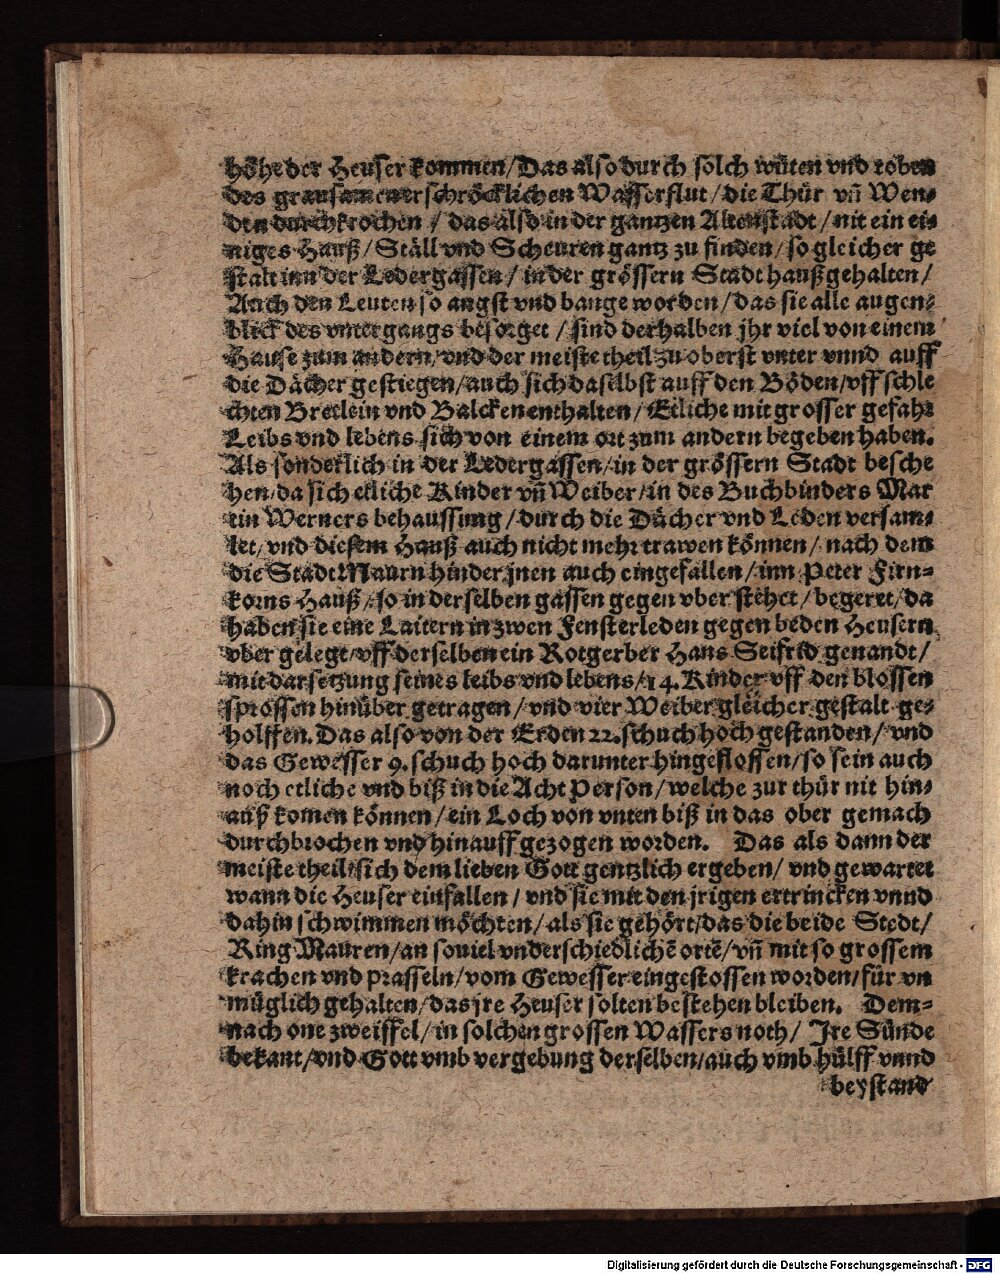 höhe der Heuser kommen/ Das also durch solch wüten vnd toben
des grausamen erschröcklichen Wasserflut/ die Thür vn̄ Wen⸗
den durchkrochen/ das also in der gantzen Altenstadt/ nit ein ei⸗
niges Hauß/ Ställ vnd Scheuren gantz zu finden/ so gleicher ge
stalt inn der Ledergassen/ in der grössern Stadt hauß gehalten/
Auch den Leuten so angst vnd bange worden/ das sie alle augen⸗
blick des vntergangs besorget/ sind derhalben jhr viel von einem
Hause zum andern/ vnd der meiste theil zu oberst vnter vnnd auff
die Dächer gestiegen/ auch sich daselbst auff den Böden/ vff schle
chten Bretlein vnd Balcken enthalten/ Etliche mit grosser gefahr
Leibs vnd lebens sich von einem ort zum andern begeben haben.
Als sonderlich in der Ledergassen/ in der grössern Stadt besche
hen/ da sich etliche Kinder vn̄ Weiber/ in des Buchbinders Mar
tin Werners behaussung/ durch die Dächer vnd Läden versam⸗
let/ vnd diesem Hauß auch nicht mehr trawen können/ nach dem
die Stadt Maurn hinder jnen auch eingefallen/ inn Peter Firn⸗
korns Hauß/ so in derselben gassen gegen vber stehet/ begeret/ da
haben sie eine Laitern in zwen Fensterleden gegen beden Heusern
vber gelegt/ vff derselben ein Rotgerber Hans Seifrid genandt/
mit darsetzung seines leibs vnd lebens/ 14. Kinder vff den blossen
sprossen hinüber getragen/ vnd vier Weiber gleicher gestalt ge⸗
holffen. Das also von der Erden 22. schuch hoch gestanden/ vnd
das Gewesser 9. schuch hoch darunter hingeflossen/ so sein auch
noch etliche vnd biß in die Acht Person/ welche zur thür nit hin⸗
auß komen können/ ein Loch von vnten biß in das ober gemach
durchbrochen vnd hinauff gezogen worden. Das als dann der
meiste theil sich dem lieben Gott gentzlich ergeben/ vnd gewartet
wann die Heuser einfallen/ vnd sie mit den jrigen ertrincken vnnd
dahin schwimmen möchten/ als sie gehört/ das die beide Stedt/
Ring Mauren/ an souiel vnderschiedlichē ortē/ vn̄ mit so grossem
krachen vnd prasseln/ vom Gewesser eingestossen worden/ für vn
müglich gehalten/ das jre Heuser solten bestehen bleiben. Dem⸗
nach one zweiffel/ in solchen grossen Wassers noth/ Jre Sünde
bekant/ vnd Gott vmb vergebung derselben/ auch vmb hülff vnnd
beystand
Digitalisierung gefördert durch die Deutsche Forschungsgemeinschaft - DFG